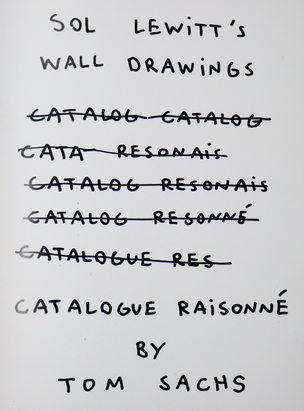 SOL LEWiTT's
WALL DRAWiNGS
CATALOG CATALOG
CATA RESONAiS
CATALOG RESONAiS
CATALOG RESONNÉ
CATALOGUE RES
CATALOGUE RAiSONNÉ
BY
TOM SACHS